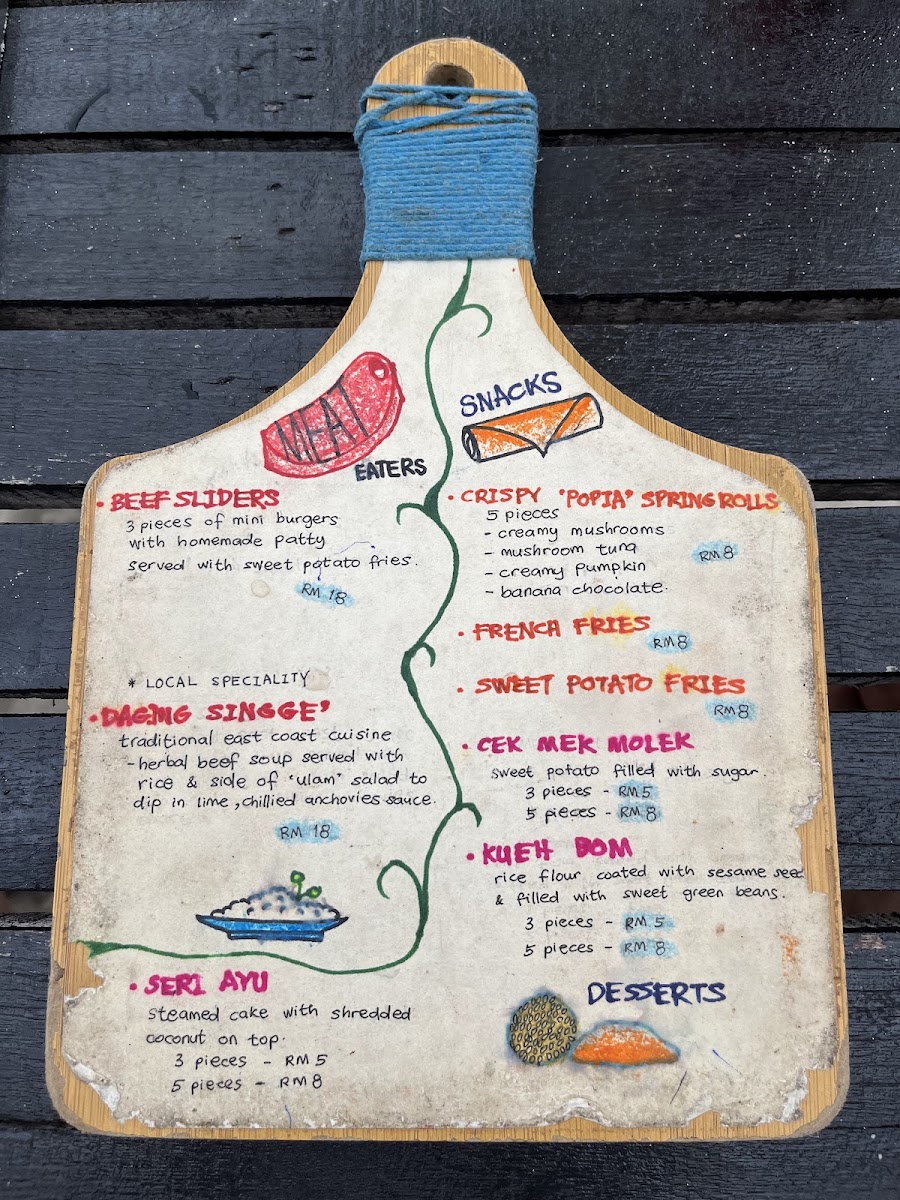 MEAT
EATERS
• BEEF SLIDERS
3 pieces of mini burgers
with homemade patty
served with sweet potato fries.
RM 18
* LOCAL SPECIALITY
• DAGING SINGGE'
traditional east coast cuisine
- herbal beef soup served with
rice & side of 'ulam' salad to
dip in lime, chillied anchovies sauce.
RM 18
SNACKS
• CRISPY 'POPIA' SPRING ROLLS
5 pieces
- creamy mushrooms
- mushroom tuna
- creamy pumpkin
- banana chocolate.
RM 8
• FRENCH FRIES
RM 8
• SWEET POTATO FRIES
RM 8
• CEK MEK MOLEK
sweet potato filled with sugar.
3 pieces - RM 5
5 pieces - RM 8
• KUEH BOM
rice flour coated with sesame seed
& filled with sweet green beans.
3 pieces - RM 5
5 pieces - RM 8
DESSERTS
• SERI AYU
Steamed cake with shredded
coconut on top.
3 pieces - RM 5
5 pieces - RM 8